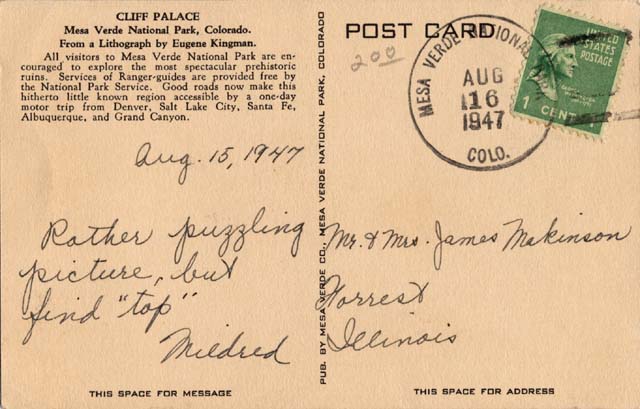 CLIFF PALACE
Mesa Verde National Park, Colorado.
From a Lithograph by Eugene Kingman.
All visitors to Mesa Verde National Park are en-
couraged to explore the most spectacular prehistoric
ruins. Services of Ranger-guides are provided free by
the National Park Service. Good roads now make this
hitherto little known region accessible by a one-day
motor trip from Denver, Salt Lake City, Santa Fe,
Albuquerque, and Grand Canyon.
Aug. 15, 1947
Rather puzzling
picture, but
find "top"
Mildred
THIS SPACE FOR MESSAGE
PUB. BY MESA VERDE CO., MESA VERDE NATIONAL PARK, COLORADO
POST CARD
200
MESA VERDE NATIONAL
AUG
16
1947
COLO.
UNITED
STATES
POSTAGE
1 CENT
Mr. & Mrs. James Makinson
Forrest
Illinois
THIS SPACE FOR ADDRESS